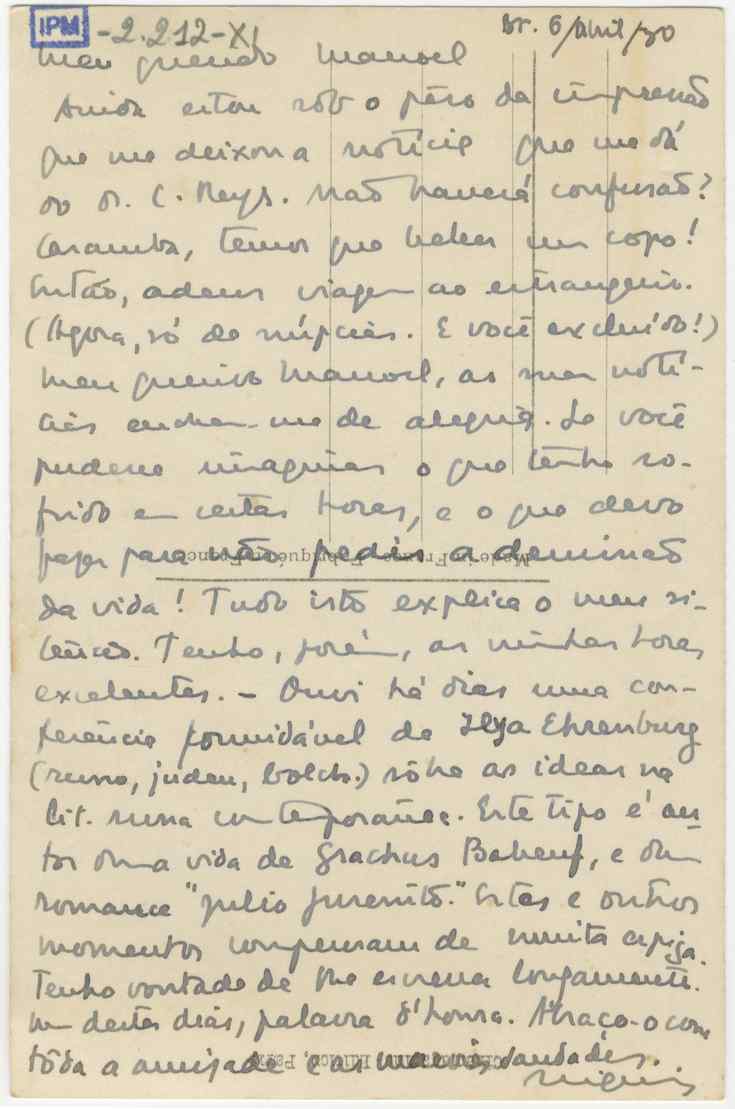 IPM -2.212-XI
Br. 6/Abril/30
Meu querido Manoel
Ainda estou sôb o pêso da impressão
que me deixou a notícia que me dá
do Dr. C. Reys. Não haverá confusão?
Caramba, temos que beber um copo!
Então, adeus viagem ao estrangeiro.
(Agora, só de núpcias. E você excluído!)
Meu querido Manoel, as suas notí-
cias enchem-me de alegria. Se você
pudesse imaginar o que tenho so-
frido em certas horas, e o que devo
fazer para não pedir a demissão
da vida! Tudo isto explica o meu si-
lêncio. Tenho, porém, as minhas horas
excelentes. - Ouvi há dias uma con-
ferência formidável de Ilya Ehrenburg
(russo, judeu, bolch.) sôbre as ideas na
lit. russa contemporânea. Este tipo é au-
tor duma vida de Grachus Babeuf, e dum
romance "Julio Jurenito." Estes e outros
momentos compensam de muita espiga.
Tenho vontade de lhe escrever longamente.
Um destes dias, palavra d'honra. Abraço-o com
tôda a amizade e as saudades.
Made in France - Fabriqué en France